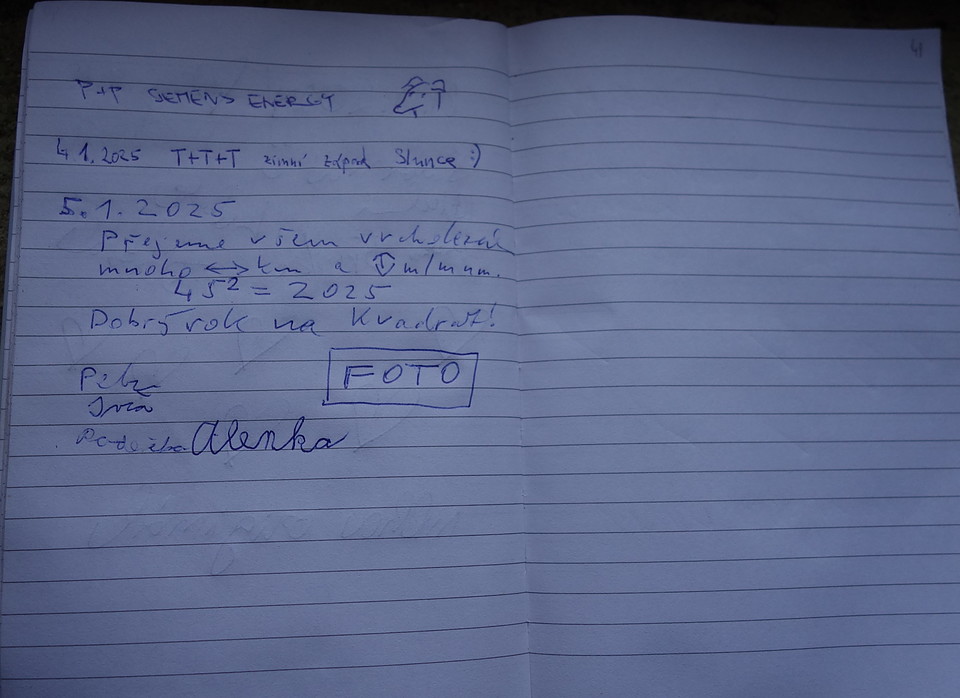 41
P+P SIEMENS ENERGY
4.1.2025 T+T+T zimní západ Slunce :)
5.1.2025
Přejeme všem vrcholařům
mnoho ↔ km a ⇕ m/mnm.
45² = 2025
Dobrý rok na Kvadrát!
FOTO
Petr
Alenka